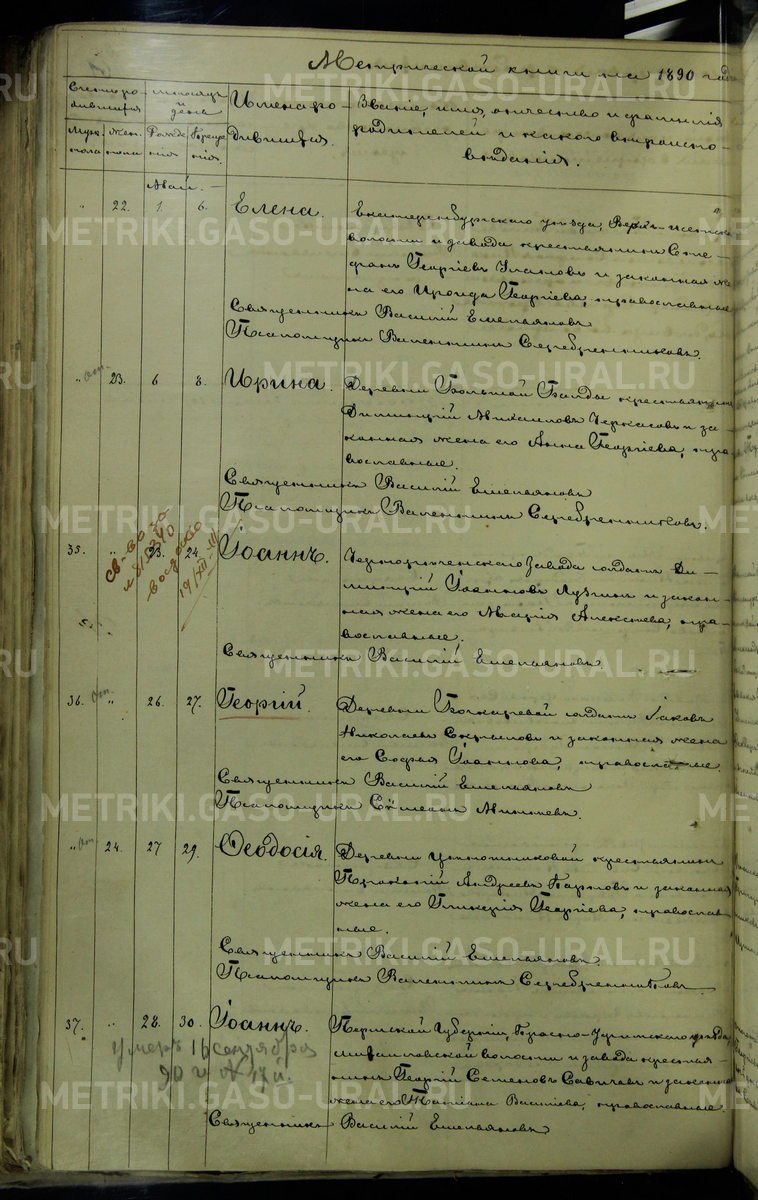 Метрической книги на 1890 годъ
Счетъ ро-
дившихся
Мѣсяцъ
и
день
Имена ро-
дившихся.
Званіе, имя, отчество и фамилія
родителей и какого вѣроиспо-
вѣданія.
Муж.
пола
Жен.
пола
Рожде
нія
Креще
нія.
Май.
" 22. 1. 6. Елена. Екатеринбургскаго уѣзда, Верхъ-Исетск
волости и завода крестьянинъ Сте-
фанъ Георгіевъ и законная же
на его Ираида Георгіева, православные
Священникъ Василій Емельяновъ
Псаломщикъ Валентинъ Серебренниковъ.
" 23. 6 8. Ирина. Деревни Большой крестьянинъ
Димитрій Михаиловъ Черкасовъ и за-
конная жена его Анна Георгіева, пра-
вославные.
Священникъ Василій Емельяновъ
Псаломщикъ Валентинъ Серебренниковъ.
35. " 23. 24. Іоаннъ. завода солдатъ Ди-
митрій Іоанновъ и закон-
ная жена его Марія Алексѣева, пра-
вославные.
св-во за
№
выдано
19 XII
Священникъ Василій Емельяновъ
36. " 26. 27. Георгій. Деревни солдатъ Іаковъ
Николаевъ и законная жена
его Софья Іоаннова, православные.
Священникъ Василій Емельяновъ
Псаломщикъ Сѵмеонъ
" 24. 27 29. Ѳеодосія. Деревни крестьянинъ
Прокопій Андреевъ Карповъ и законная
жена его Гликерія Георгіева, православ-
ные.
Священникъ Василій Емельяновъ.
Псаломщикъ Валентинъ Серебренниковъ
37. " 28. 30. Іоаннъ. Пермской Губерніи, Красно-Уфимскаго уѣзда,
Михайловской волости и завода крестья-
нинъ Георгій Семеновъ Савичевъ и законная
жена его Татіана Василіева, православные.
Умеръ 16 сентября
90 г. №
Священникъ Василій Емельяновъ
METRIKI.GASO-URAL.RU